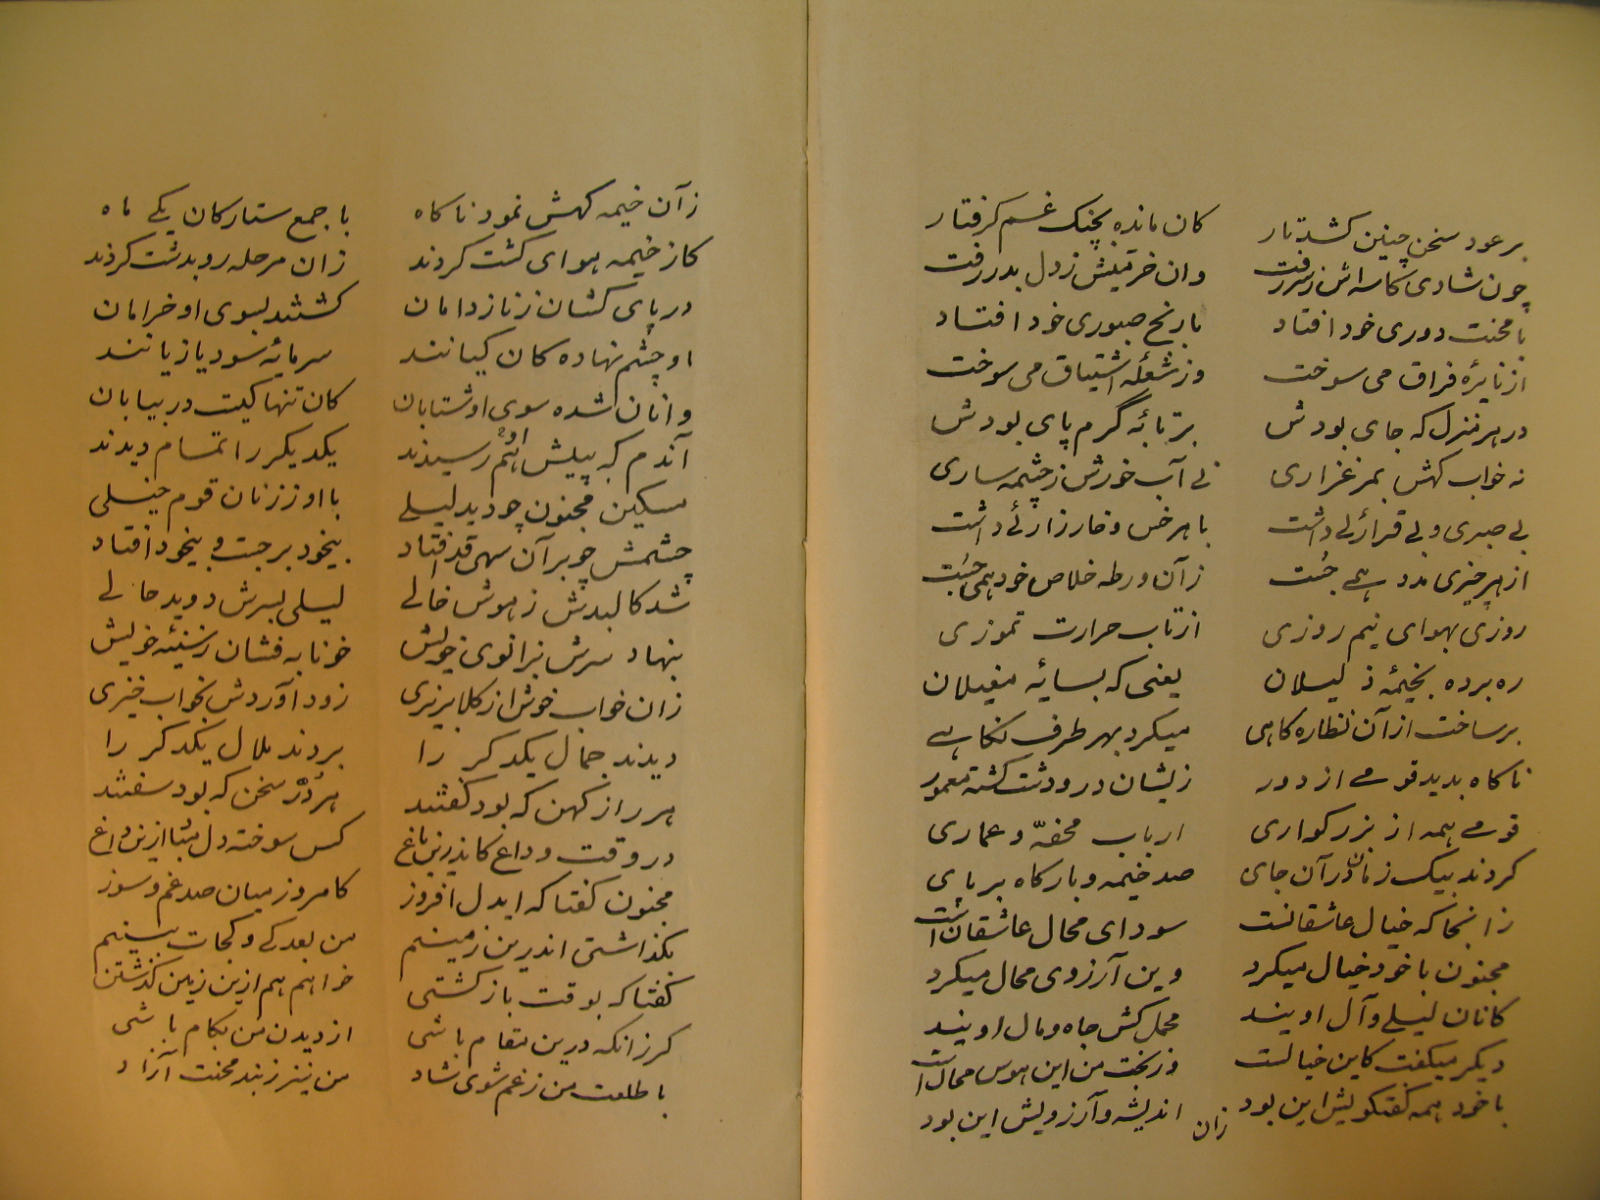 بر عود سخن چنین کشد تار کان مانده بچنک غم کرفتار
چون شادی کاسه اش ز سر رفت وان خرمیش ز دل بدر رفت
با محنت دوری خود افتاد با رنج صبوری خود افتاد
از نایرهٔ فراق می سوخت وز شعلهٔ اشتیاق می سوخت
در هر منزل که جای بودش بر تابهٔ گرم پای بودش
نه خواب کهش بمرغزاری نے آب خورش ز چشمه ساری
بے صبری و بے قرارئے داشت با هر خس و خار زارئے داشت
از هر چیزی مدد همے جُست زآن ورطه خلاص خود همی جُست
روزی بهوای نیم روزی از تاب حرارت تموزی
ره برده بخیمهٔ ذلیلان یعنی که بسایهٔ مغیلان
برساخت از آن نظاره کاهی میکرد بهر طرف نکاهے
ناکاه بدید قومے از دور زیشان در و دشت کشته معمور
قومے همه از بزرکواری ارباب محفّه و عماری
کردند بیک زمان در آن جای صد خیمه و بارکاه بر پای
زانجا که خیال عاشقانست سودای محال عاشقان است
مجنون با خود خیال میکرد وین آرزوی محال میکرد
کانان لیلے و آل اویند محمل کش جاه و مال اویند
دیکر میکفت کاین خیالست وز بخت من این هوس محال است
با خود همه کفتکویش این بود اندیشه و آرزویش این بود
زان
زآن خیمه کهش نمود ناکاه با جمع ستارکان یکے ماه
کاز خیمه هوای کشت کردند زان مرحله رو بدشت کردند
در پای کشان ز ناز دامان کشتند بسوی او خرامان
او چشم نهاده کان کیانند سرمایهٔ سود یا زیانند
وانان شده سوی او شتابان کان تنها کیست در بیابان
آندم که به پیش هم رسیدند یکدیکر را تمام دیدند
مسکین مجنون چو دید لیلے با او ز زنان قوم خیلی
چشمش چو بر آن سهی قد افتاد بیخود برجست و بیخود افتاد
شد کالبدش ز هوش خالے لیلی بسرش دوید حالے
بنهاد سرش بزانوی خویش خونابه فشان ز سینهٔ خویش
زان خواب خوش از کلاب ریزی زود آوردش بخواب خیزی
دیدند جمال یکدکر را بردند ملال یکدکر را
هر راز کهن که بود کفتند هر دُرّ سخن که بود سفتند
در وقت وداع کاندرین باغ کس سوخته دل مبادا ازین داغ
مجنون کفتا که ایدل افروز کامروز میان صد غم و سوز
بکذاشتی اندرین زمینم من بعد کے و کجات بینم
کفتا که بوقت بازکشتی خواهم هم ازین زمین کذشتن
کر زانکه درین مقام باشی از دیدن من بکام باشی
با طلعت من ز غم شوی شاد من نیز ز بند محنت آزاد